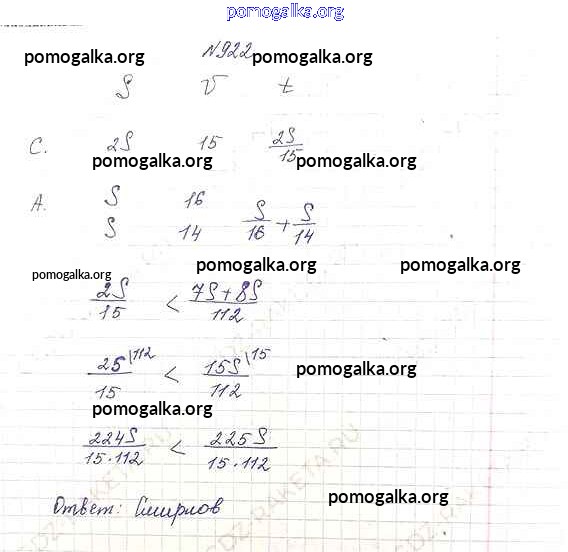 pomogalka.org
pomogalka.org N922 pomogalka.org
S V t
C. 2S 15 2S/15
pomogalka.org pomogalka.org
A. S 16
S 14 S/16 + S/14
pomogalka.org pomogalka.org pomogalka.org
2S/15 < 7S+8S/112
2S|112/15 < 15S|15/112 pomogalka.org
pomogalka.org
224S/15·112 < 225S/15·112
Ответ: Смирлов
pomogalka.org
GDZ-RAKETA.RU